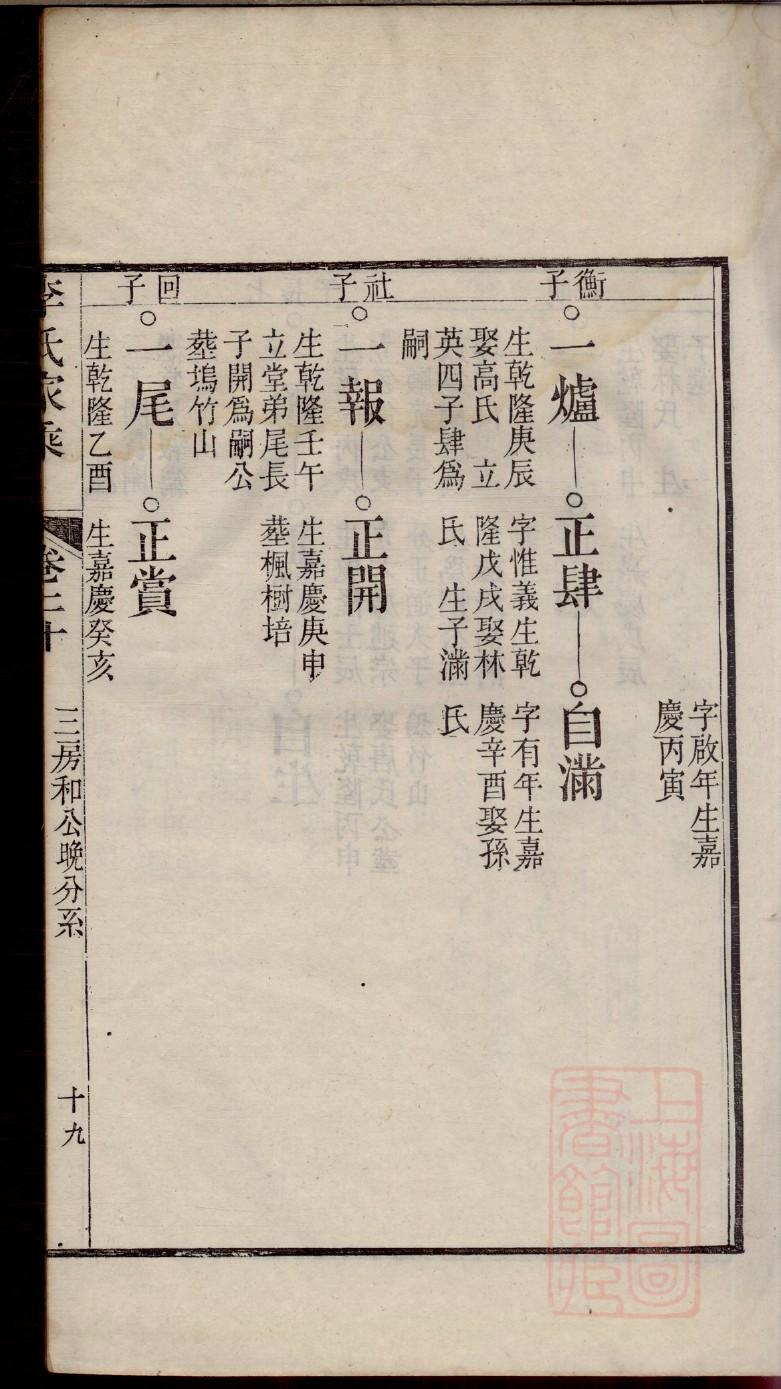 字啟年生嘉
慶丙寅
衡子
一爐
正肆
自滿
生乾隆庚辰
娶高氏 立
英四子肆爲
嗣
字惟義生乾
隆戊戌娶林
氏 生子滿
字有年生嘉
慶辛酉娶孫
氏
社子
一報
正開
生乾隆壬午
立堂弟尾長
子開爲嗣公
塟塢竹山
生嘉慶庚申
塟楓樹培
回子
一尾
正賞
生乾隆乙酉
生嘉慶癸亥
李氏家乘
卷二十
三房和公晚分系
十九
上海圖
書館藏